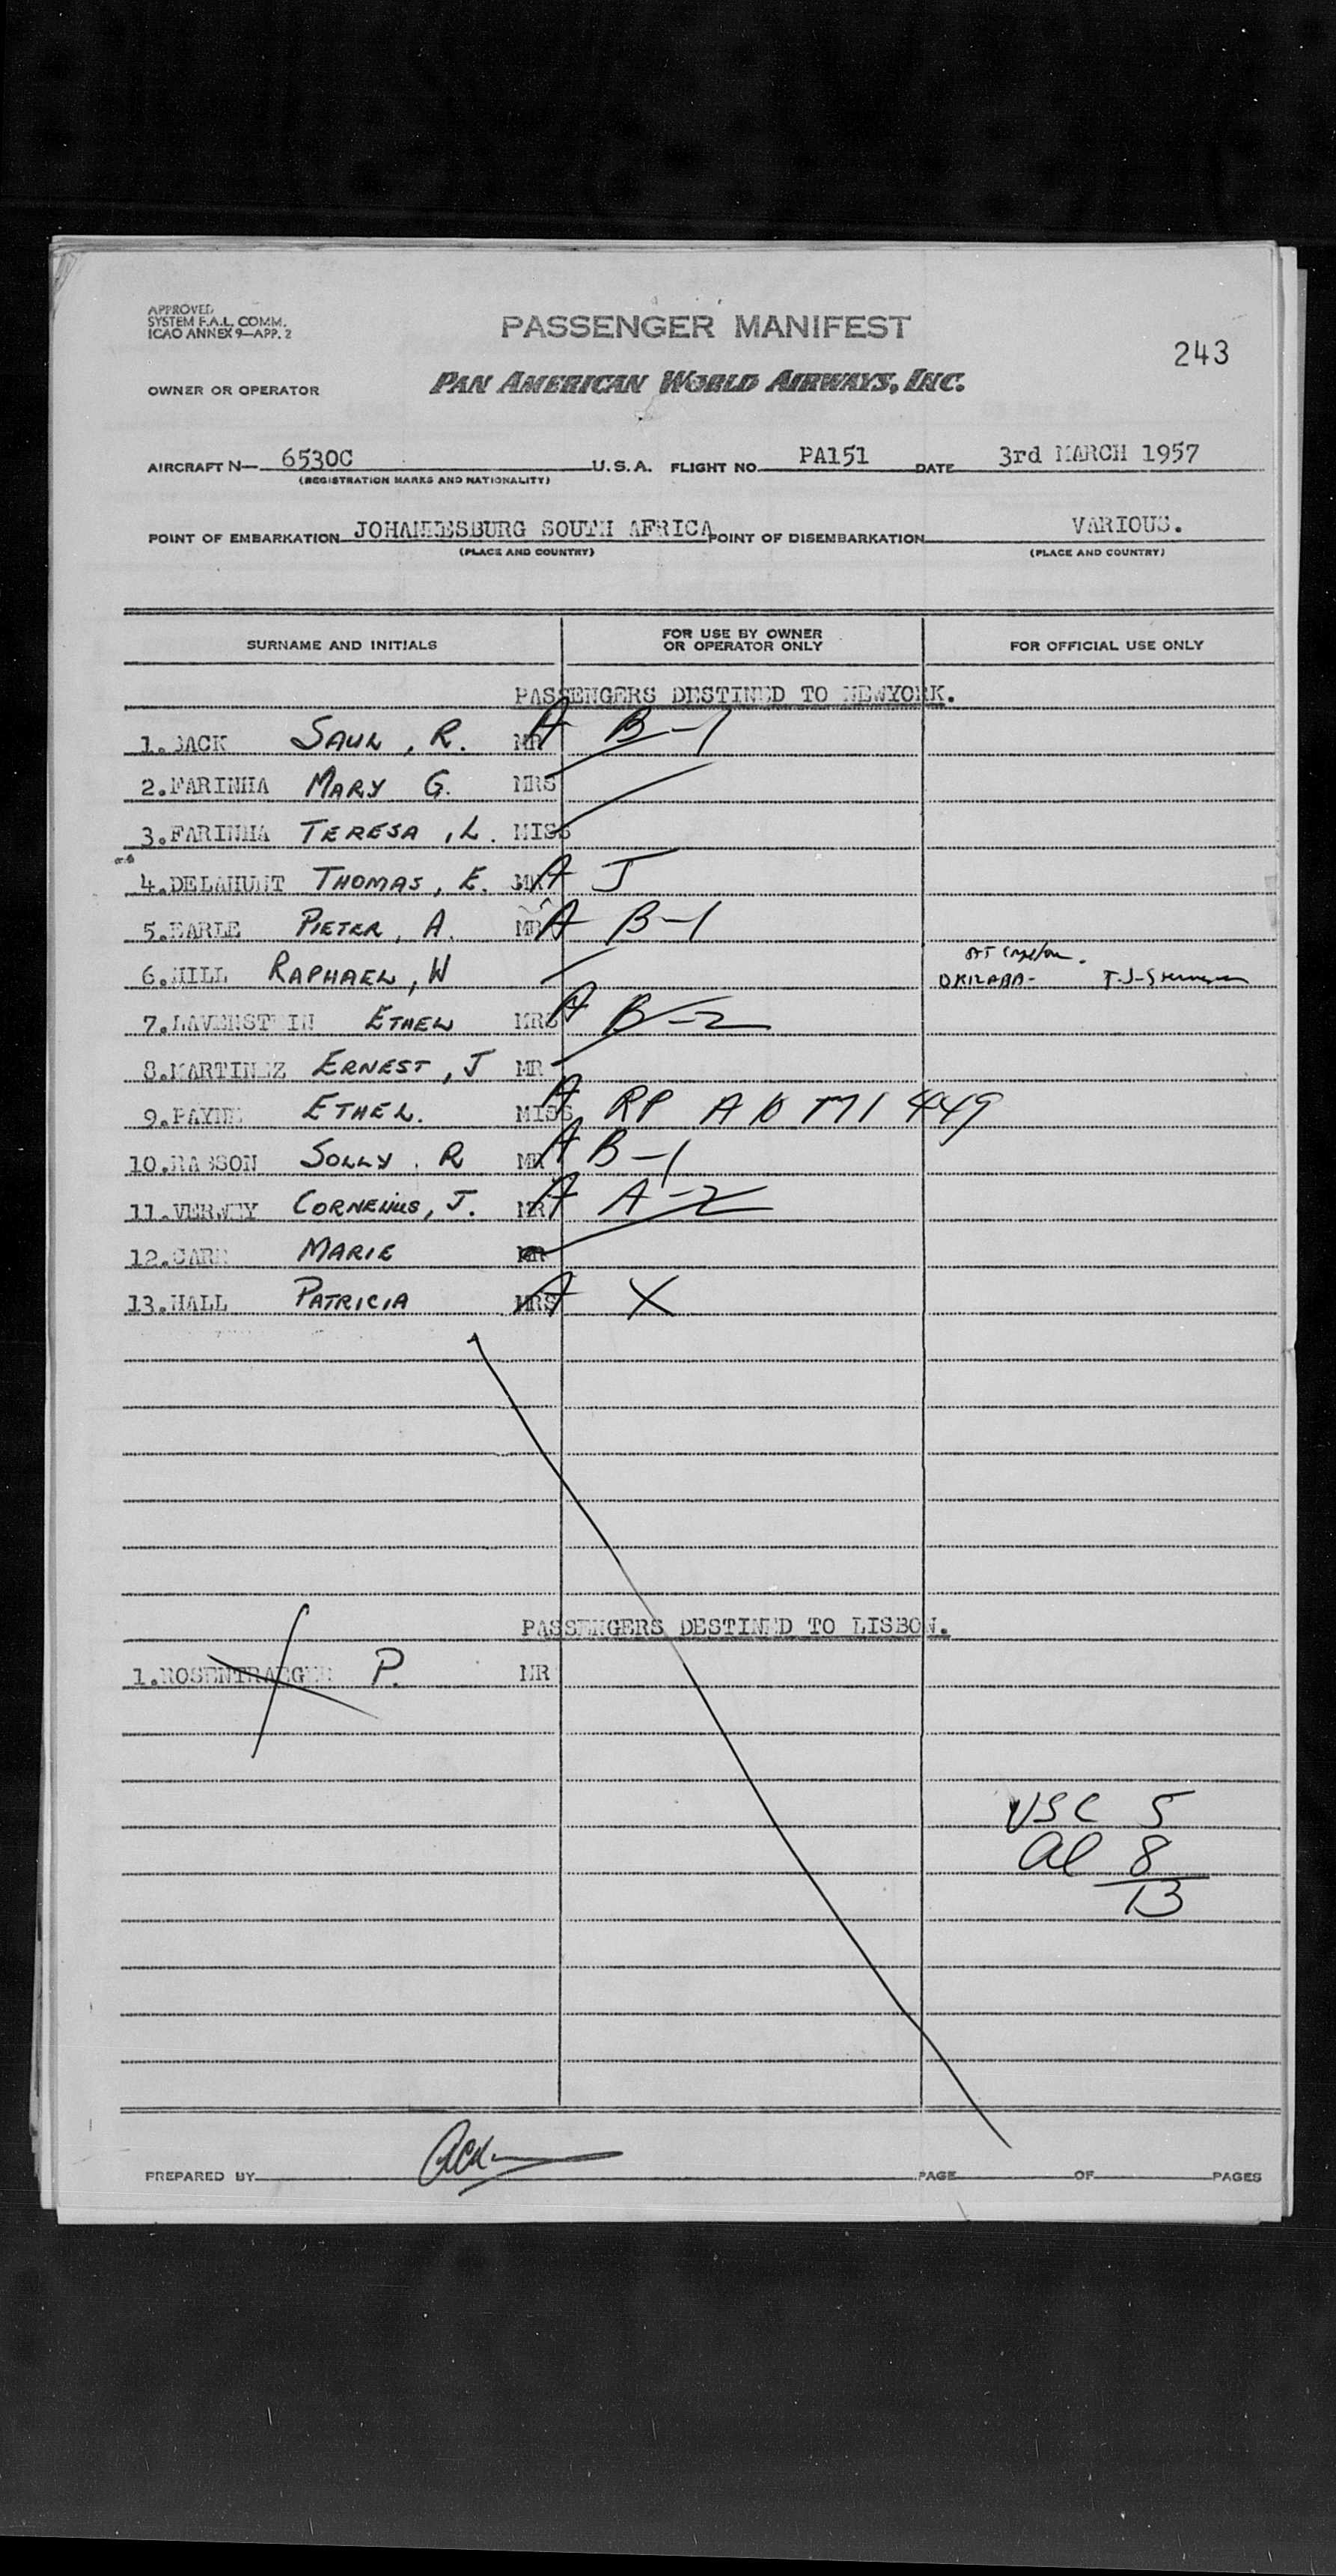 APPROVED
SYSTEM F.A.L. COMM.
ICAO ANNEX 9—APP. 2
PASSENGER MANIFEST
243
OWNER OR OPERATOR
PAN AMERICAN WORLD AIRWAYS, INC.
AIRCRAFT N— 6530C U.S.A. FLIGHT NO. PA151 DATE 3rd MARCH 1957
(REGISTRATION MARKS AND NATIONALITY)
POINT OF EMBARKATION JOHANNESBURG SOUTH AFRICA POINT OF DISEMBARKATION VARIOUS.
(PLACE AND COUNTRY) (PLACE AND COUNTRY)
SURNAME AND INITIALS FOR USE BY OWNER OR OPERATOR ONLY FOR OFFICIAL USE ONLY
PASSENGERS DESTINED TO NEWYORK.
1. BACK SAUL, R. MR A B-1
2. FARINHA MARY G. MRS
3. FARINHA TERESA, L. MISS
4. DELAHUNT THOMAS, E. MR A J
5. EARLE PIETER, A. MR A B-1
6. HILL RAPHAEL, W
7. LAVENSTEIN ETHEL MRS A B-2
8. MARTINEZ ERNEST, J MR
9. PAYNE ETHEL. MISS A RP A10 711 449
10. RABSON SOLLY. R MR A B-1
11. VERWEY CORNELIUS, J. MR A A-2
12. CARR MARIE MR
13. HALL PATRICIA MRS A X
PASSENGERS DESTINED TO LISBON.
1. ROSENTRAEGER P. MR
USC 5
Al 8
13
PREPARED BY PAGE OF PAGES